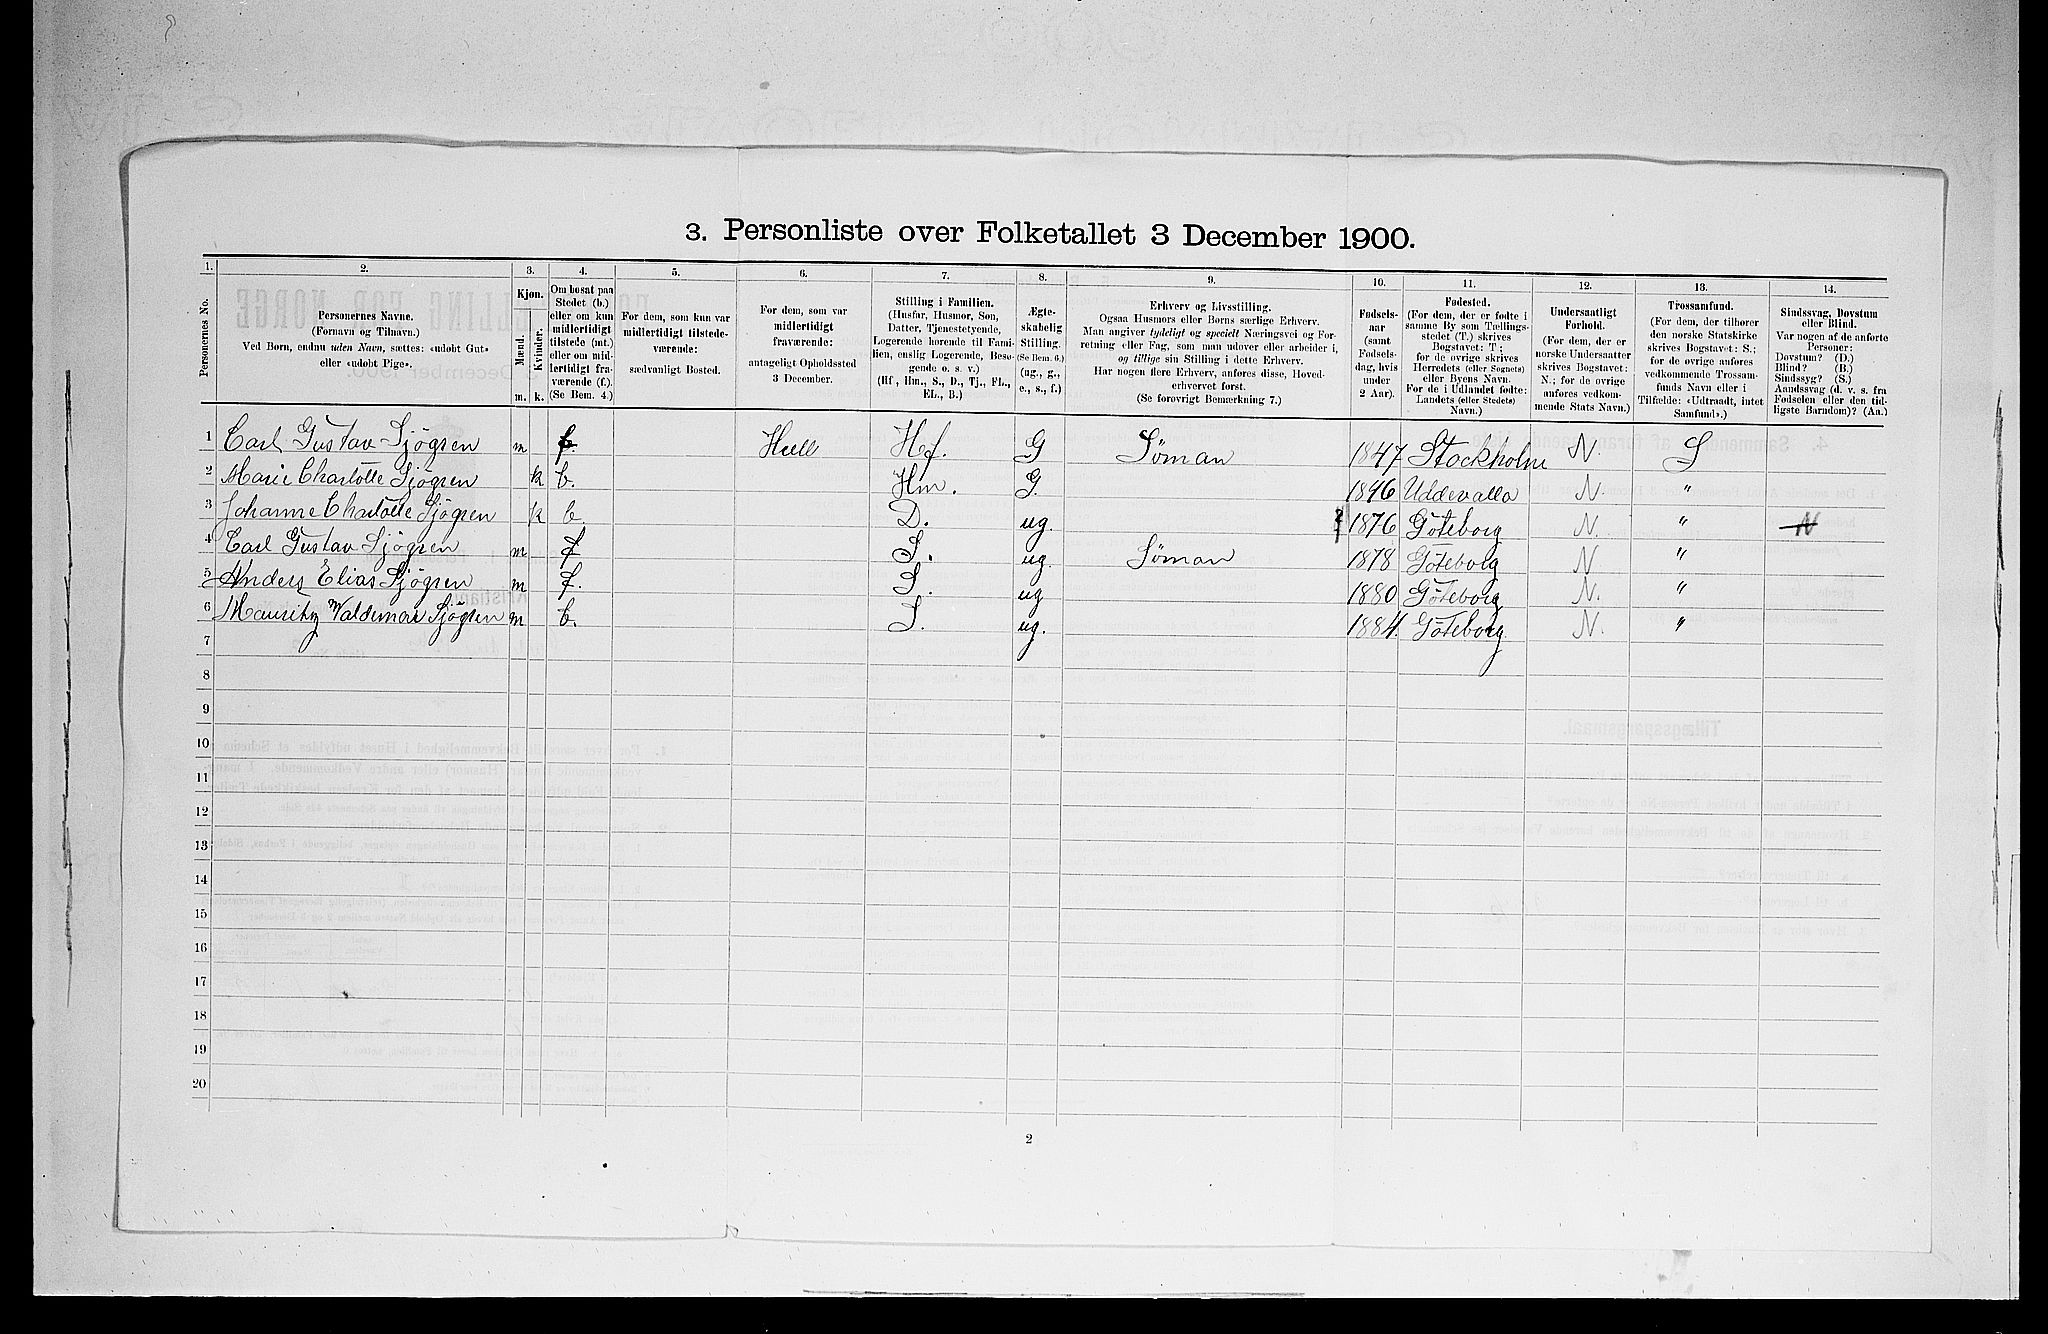 3. Personliste over Folketallet 3 December 1900.
1. 2. 3. 4. 5. 6. 7. 8. 9. 10. 11. 12. 13. 14.
Personernes No.
Personernes Navne.
(Fornavn og Tilnavn.)
Ved Børn, endnu uden Navn, sættes: «udøbt Gut»
eller «udøbt Pige».
Kjøn.
Mænd.
Kvinder.
m. k.
Om bosat paa
Stedet (b.)
eller om kun
midlertidigt
tilstede (mt.)
eller om mid-
lertidigt fra-
værende (f.).
(Se Bem. 4.)
For dem, som kun var
midlertidigt tilstede-
værende:
sædvanligt Bosted.
For dem, som var
midlertidigt
fraværende:
antageligt Opholdssted
3 December.
Stilling i Familien.
(Husfar, Husmor, Søn,
Datter, Tjenestetyende,
Logerende hørende til Fami-
lien, enslig Logerende, Besø-
gende o. s. v.)
(Hf., Hm., S., D., Tj., FL.,
EL., B.)
Ægte-
skabelig
Stilling.
(Se Bem. 6.)
(ug., g.,
e., s., f.)
Erhverv og Livsstilling.
Ogsaa Husmors eller Børns særlige Erhverv.
Man angiver tydeligt og specielt Næringsvei og For-
retning eller Fag, som man udøver eller arbeider i,
og tillige sin Stilling i dette Erhverv.
Har nogen flere Erhverv, anføres disse, Hoved-
erhvervet først.
(Se forøvrigt Bemærkning 7.)
Fødsels-
aar
(samt
Fødsels-
dag, hvis
under
2 Aar).
Fødested.
(For dem, der er fødte i
samme By som Tællings-
stedet (T.) skrives
Bogstavet: T;
for de øvrige skrives
Herredets (eller Sognets)
eller Byens Navn.
For de i Udlandet fødte:
Landets (eller Stedets)
Navn.)
Undersaatligt
Forhold.
(For dem, der er
norske Undersaatter
skrives Bogstavet:
N.; for de øvrige
anføres vedkom-
mende Stats Navn.)
Trossamfund.
(For dem, der tilhører
den norske Statskirke
skrives Bogstavet: S.;
for de øvrige anføres
vedkommende Trossam-
funds Navn eller i
Tilfælde: «Udtraadt, intet
Samfund».)
Sindssvag, Døvstum
eller Blind.
Var nogen af de anførte
Personer:
Døvstum? (D.)
Blind? (B.)
Sindssyg? (S.)
Aandssvag (d. v. s. fra
Fødselen eller den tid-
ligste Barndom)? (Aa.)
1 Carl Gustav Sjögren m f. Hull Hf. G Söman 1847 Stockholm N. S
2 Marie Charlotte Sjögren k b. Hm. G. 1846 Uddevalla N. "
3 Johanne Charlotte Sjögren k b. D. ug. 1876 Göteborg N. " N
4 Carl Gustav Sjögren m f S. ug. Söman 1878 Göteborg N "
5 Anders Elias Sjögren m f. S. ug 1880 Göteborg N. "
6 Mauritz Valdemar Sjögren m b. S. ug. 1884. Göteborg N. "
7
8
9
10
11
12
13
14
15
16
17
18
19
20
2